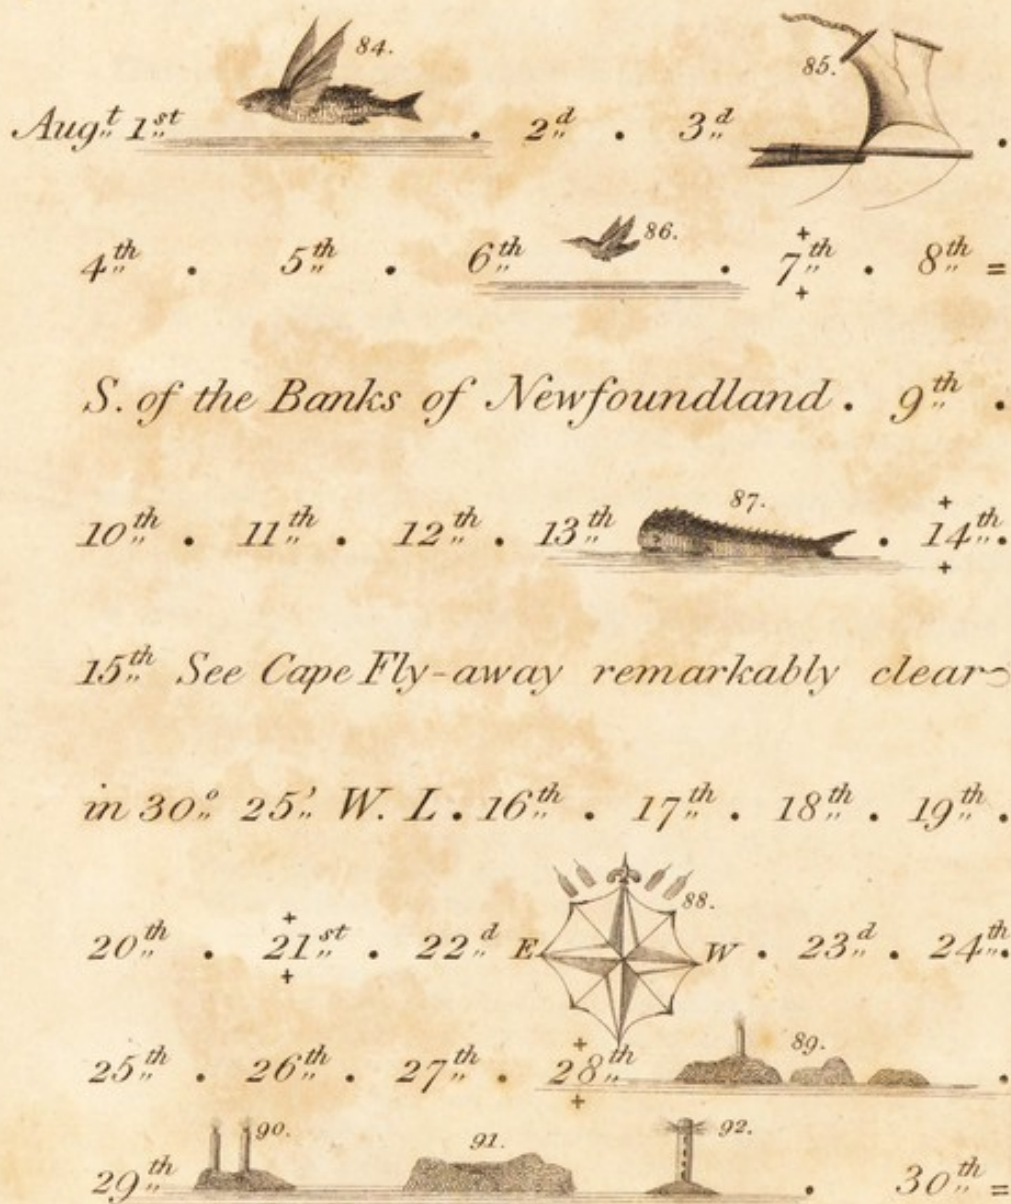 84.
85.
Aug.,,t 1,,st . 2,,d . 3,,d .
86.
4,,th . 5,,th . 6,,th . 7,,th . 8,,th =
S. of the Banks of Newfoundland . 9,,th .
87.
10,,th . 11,,th . 12,,th . 13,,th . 14,,th .
15,,th See Cape Fly-away remarkably clear
in 30,,° 25,,' W. L . 16,,th . 17,,th . 18,,th . 19,,th .
88.
20,,th . 21,,st . 22,,d E W . 23,,d . 24,,th .
89.
25,,th . 26,,th . 27,,th . 28,,th .
90. 91. 92.
29,,th . 30,,th =